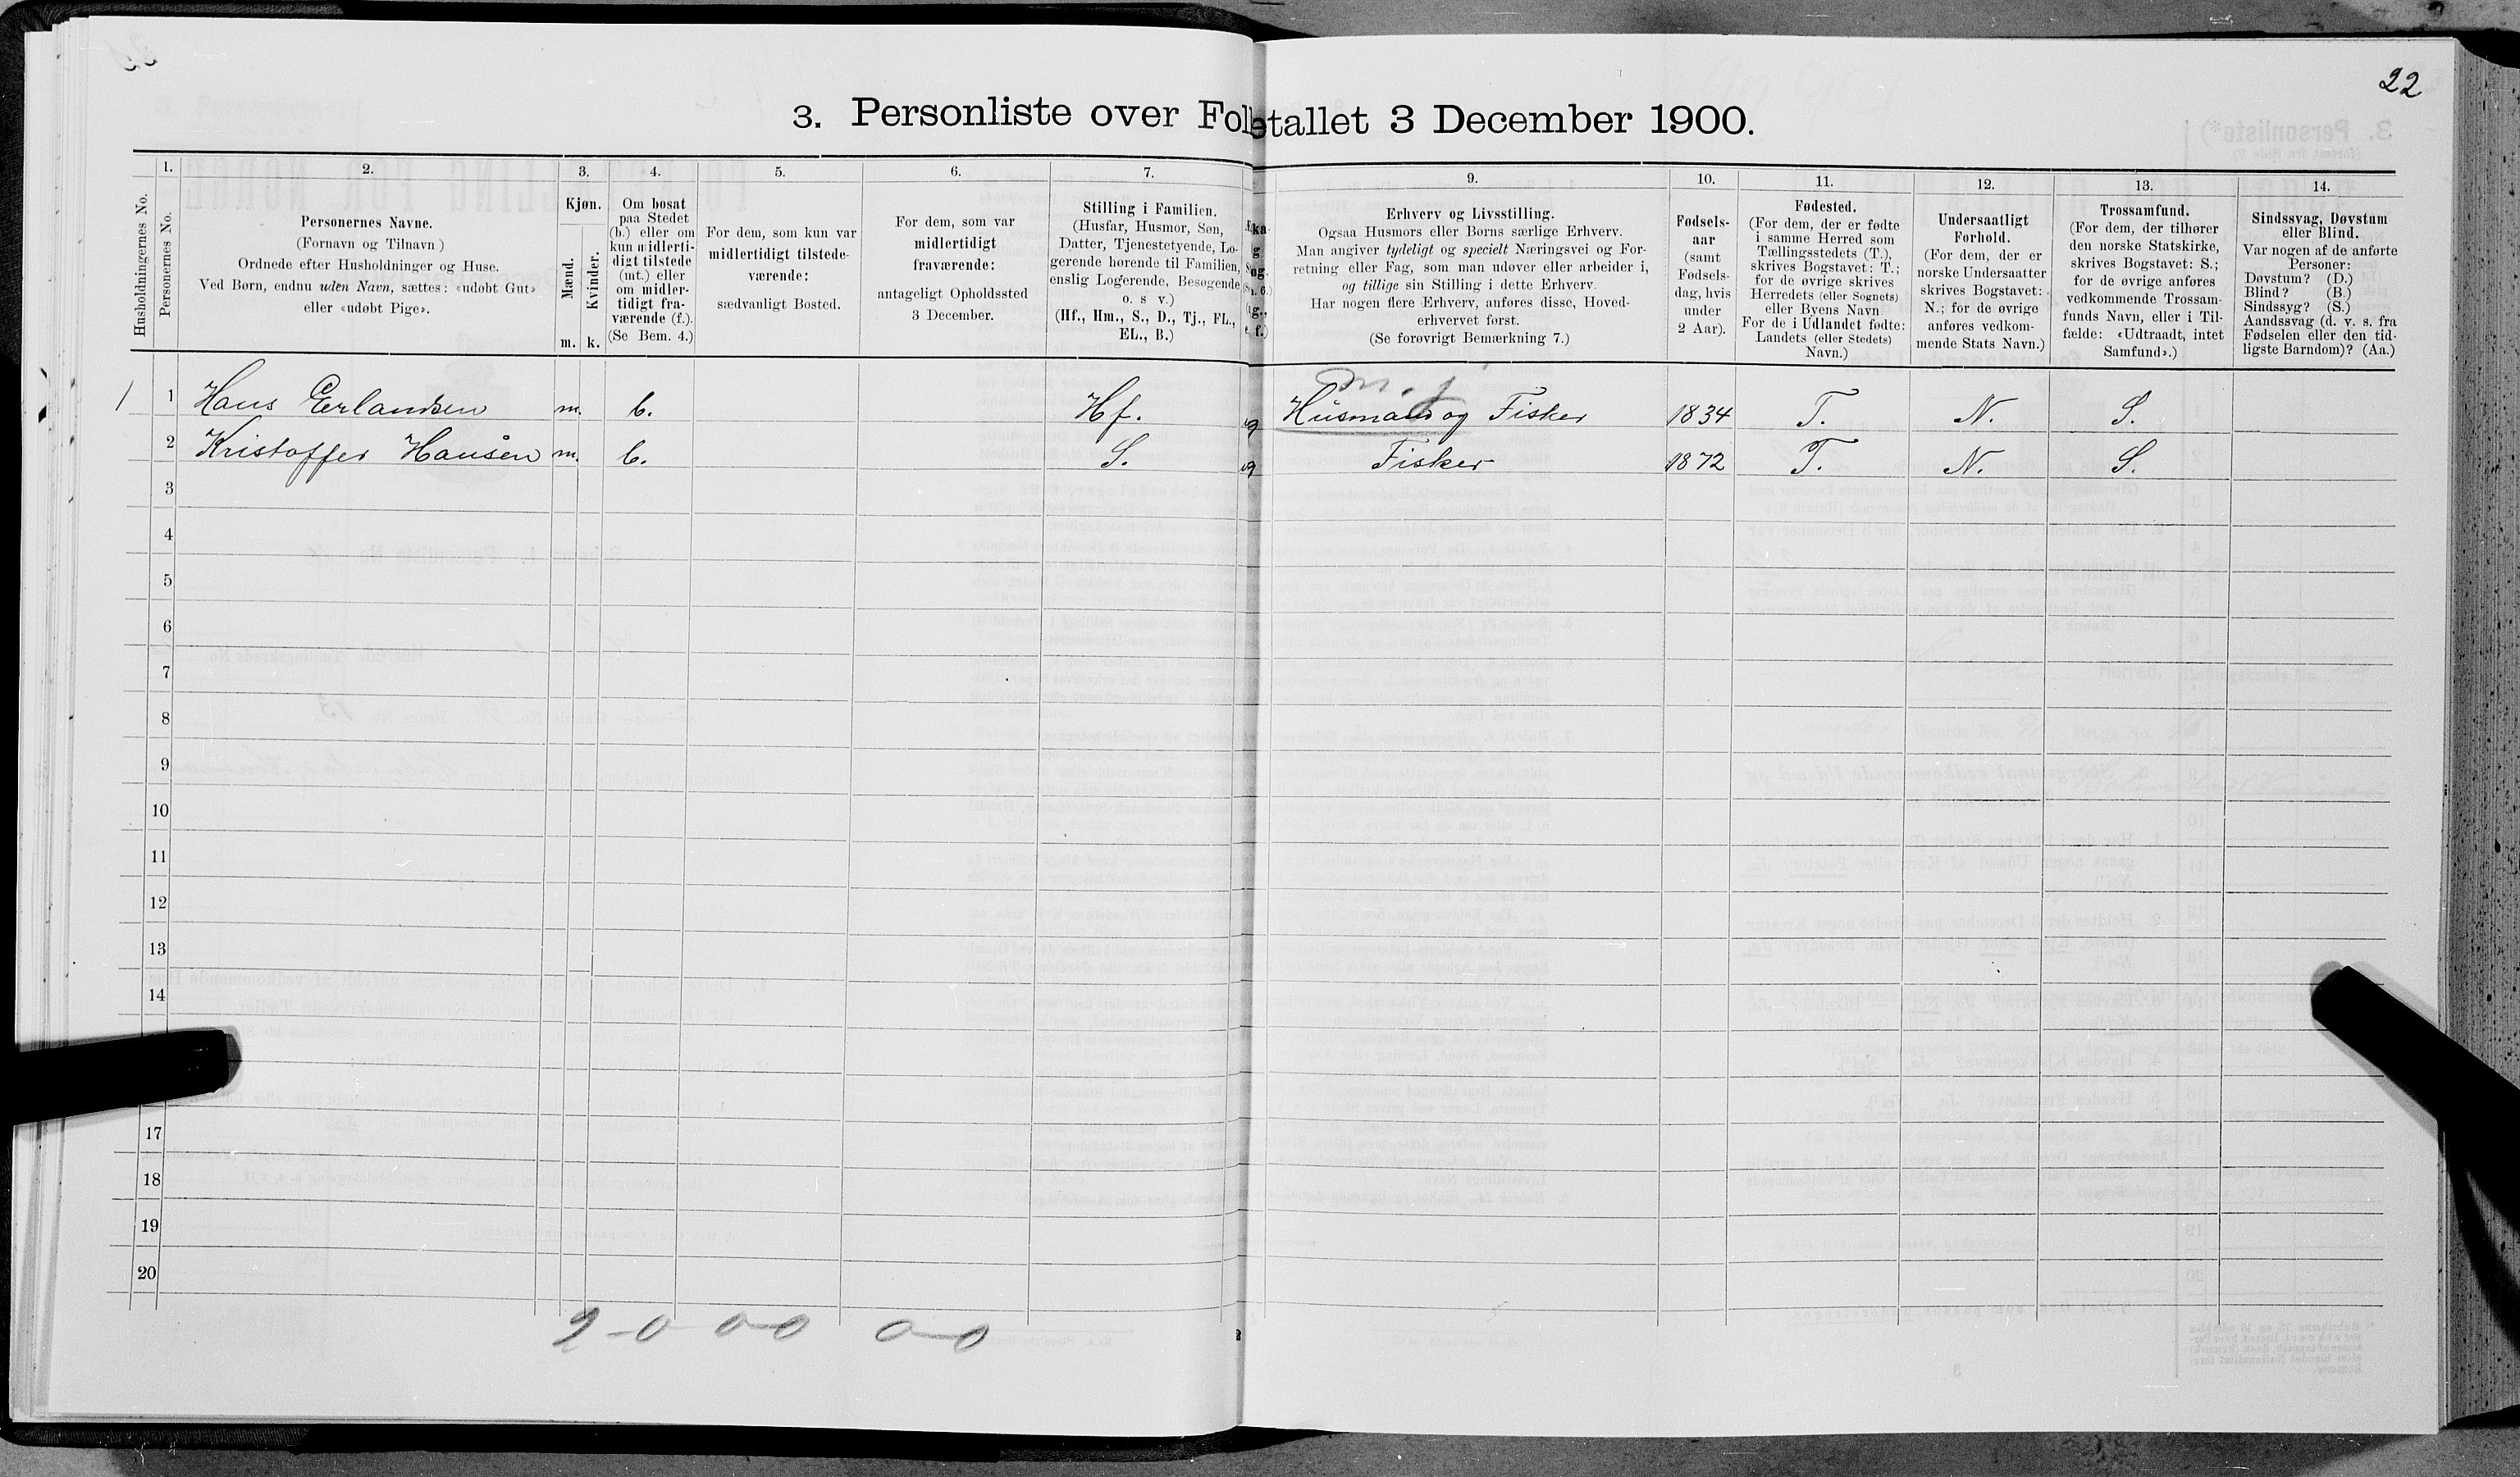 22
3. Personliste over Folketallet 3 December 1900.
Husholdningernes No.
1.
Personernes No.
2.
Personernes Navne.
(Fornavn og Tilnavn)
Ordnede efter Husholdninger og Huse.
Ved Børn, endnu uden Navn, sættes: «udøbt Gut»
eller «udøbt Pige».
3.
Kjøn.
Mænd.
Kvinder.
m. k.
4.
Om bosat
paa Stedet
(b.) eller om
kun midlerti-
digt tilstede
(mt.) eller
om midler-
tidigt fra-
værende (f.).
(Se Bem. 4.)
5.
For dem, som kun var
midlertidigt tilstede-
værende:
sædvanligt Bosted.
6.
For dem, som var
midlertidigt
fraværende:
antageligt Opholdssted
3 December.
7.
Stilling i Familien.
(Husfar, Husmor, Søn,
Datter, Tjenestetyende, Lo-
gerende hørende til Familien,
enslig Logerende, Besøgende
o. s v.)
(Hf., Hm., S., D., Tj., FL.,
EL., B.)
9.
Erhverv og Livsstilling.
Ogsaa Husmors eller Børns særlige Erhverv.
Man angiver tydeligt og specielt Næringsvei og For-
retning eller Fag, som man udøver eller arbeider i,
og tillige sin Stilling i dette Erhverv.
Har nogen flere Erhverv, anføres disse, Hoved-
erhvervet først.
(Se forøvrigt Bemærkning 7.)
10.
Fødsels-
aar
(samt
Fødsels-
dag, hvis
under
2 Aar).
11.
Fødested.
(For dem, der er fødte
i samme Herred som
Tællingsstedets (T.),
skrives Bogstavet: T.;
for de øvrige skrives
Herredets (eller Sognets)
eller Byens Navn
For de i Udlandet fødte:
Landets (eller Stedets)
Navn.)
12.
Undersaatligt
Forhold.
(For dem, der er
norske Undersaatter
skrives Bogstavet:
N.; for de øvrige
anføres vedkom-
mende Stats Navn.)
13.
Trossamfund.
(For dem, der tilhører
den norske Statskirke,
skrives Bogstavet: S.;
for de øvrige anføres
vedkommende Trossam-
funds Navn, eller i Til-
fælde: «Udtraadt, intet
Samfund».)
14.
Sindssvag, Døvstum
eller Blind.
Var nogen af de anførte
Personer:
Døvstum? (D.)
Blind? (B.)
Sindssyg? (S.)
Aandssvag (d. v. s. fra
Fødselen eller den tid-
ligste Barndom)? (Aa.)
1 1 Hans Erlandsen m. b. Hf. g Husmand og Fisker 1834 T. N. S.
2 Kristoffer Hansen m. b. S. g Fisker 1872 T. N. S.
3
4
5
6
7
8
9
10
11
12
13
14
17
18
19
20
2-0 0-0 0-0